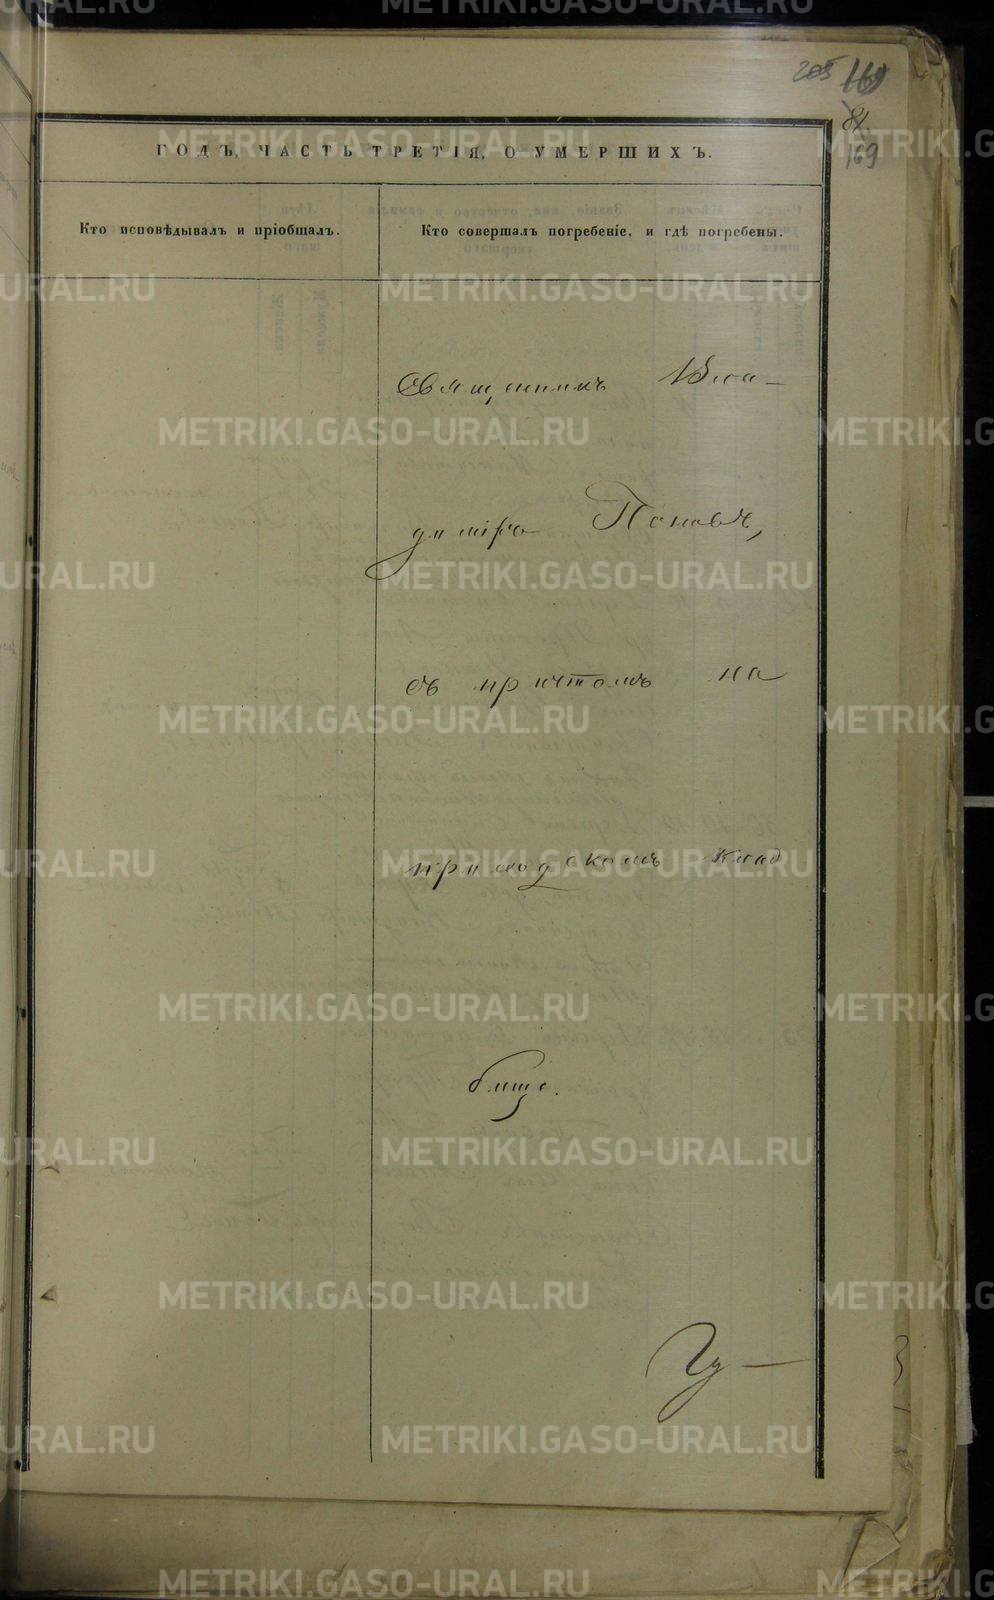 205 169
81
169
ГОДЪ, ЧАСТЬ ТРЕТІЯ, О УМЕРШИХЪ.
Кто исповѣдывалъ и пріобщалъ.
Кто совершалъ погребеніе, и гдѣ погребены.
Священникъ Вла-
димiръ Поповъ,
съ причтомъ на
приходскомъ клад
бище.
METRIKI.GASO-URAL.RU